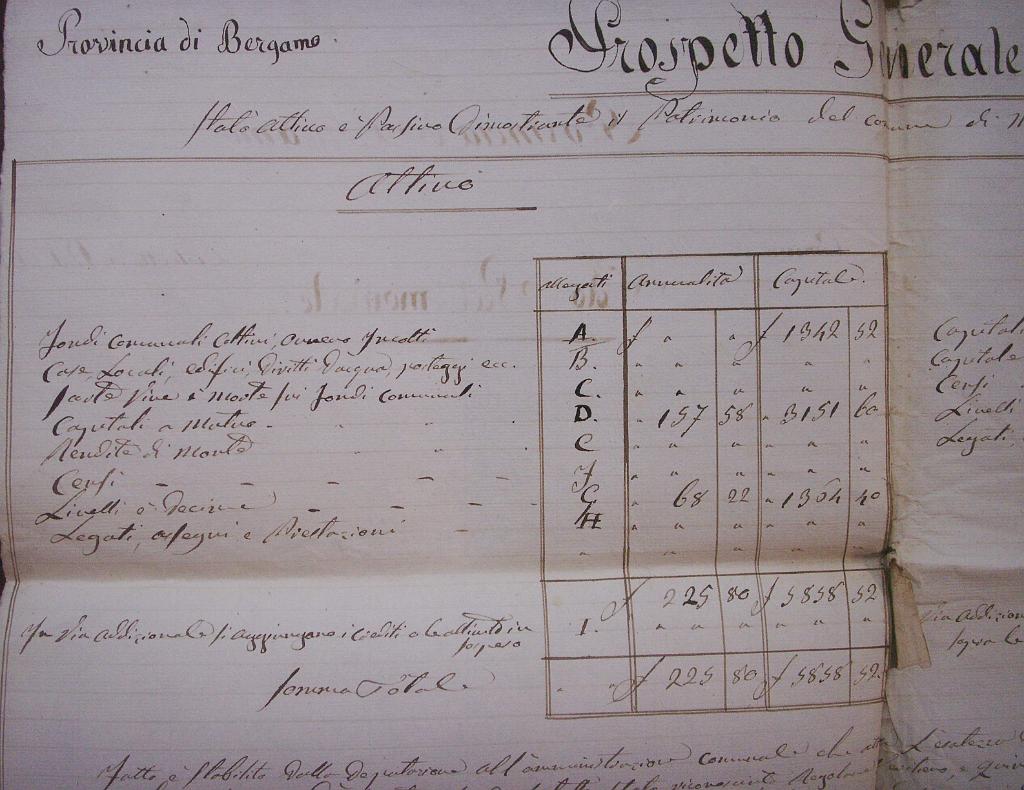 Provincia di Bergamo
Prospetto Generale
Stato Attivo e Passivo Dimostrante il Patrimonio del comune di
Attivo
Allegati Annualità Capitale.
Fondi comunali coltivi, ovvero Incolti A. f " " f 1342 52
Case, Locali, edifici, Diritti d'acqua, postaggi ecc. B. " " " " "
parte Vive e morte sui fondi comunali C. " " " " "
Capitali a Mutuo - D. " 157 58 " 3151 60
Rendite di Monte E " " " " "
Censi - - - - - F " " " " "
Livelli e Decime - - - - G " 68 22 " 1364 40
Legati, assegni e Prestazioni - H " " " " "
f 225 80 f 5858 52
In Via addizionale si aggiungano i crediti o le attività in sospeso I. " " " " "
Somma Totale " " f 225 80 f 5858 52.
Capitali
Capitale
Censi
Livelli
Legati,
Via addizion
sopra le
Fatto, e Stabilito dalla Deputazione all'amministrazione comunale che
L'esatezza